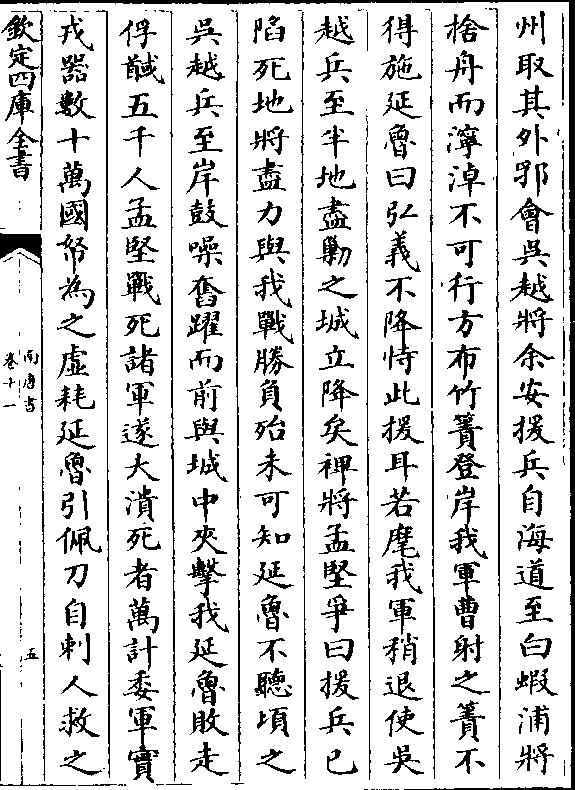 州取其外郛會吳越將余安援兵自海道至白蝦浦將
捨舟而濘淖不可行方布竹簀登岸我軍曹射之簀不
得施延魯曰弘義不降恃此援耳若麾我軍稍退使吳
越兵至半地盡勦之城立降矣裨將孟堅爭曰援兵已
陷死地將盡力與我戰勝負殆未可知延魯不聽頃之
吳越兵至岸鼓噪奮躍而前與城中夾擊我延魯敗走
俘馘五千人孟堅戰死諸軍遂大潰死者萬計委軍實
戎器數十萬國帑為之虛耗延魯引佩刀自刺人救之
欽定四庫全書
南唐書
卷十一
五